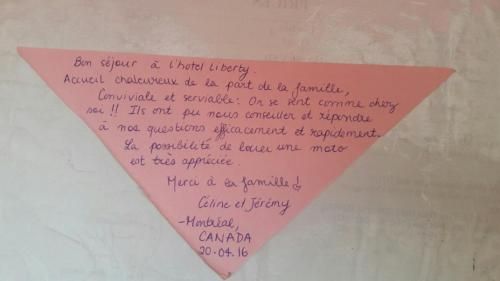 Bon séjour à l'hotel Liberty.
Accueil chaleureux de la part de la famille,
Conviviale et serviable. On se sent comme chez
soi !! Ils ont pu nous conseiller et répondre
à nos questions efficacement et rapidement.
La possibilité de louer une moto
est très appréciée.
Merci à la famille !
Céline et Jérémy
-Montréal,
CANADA
20.04.16